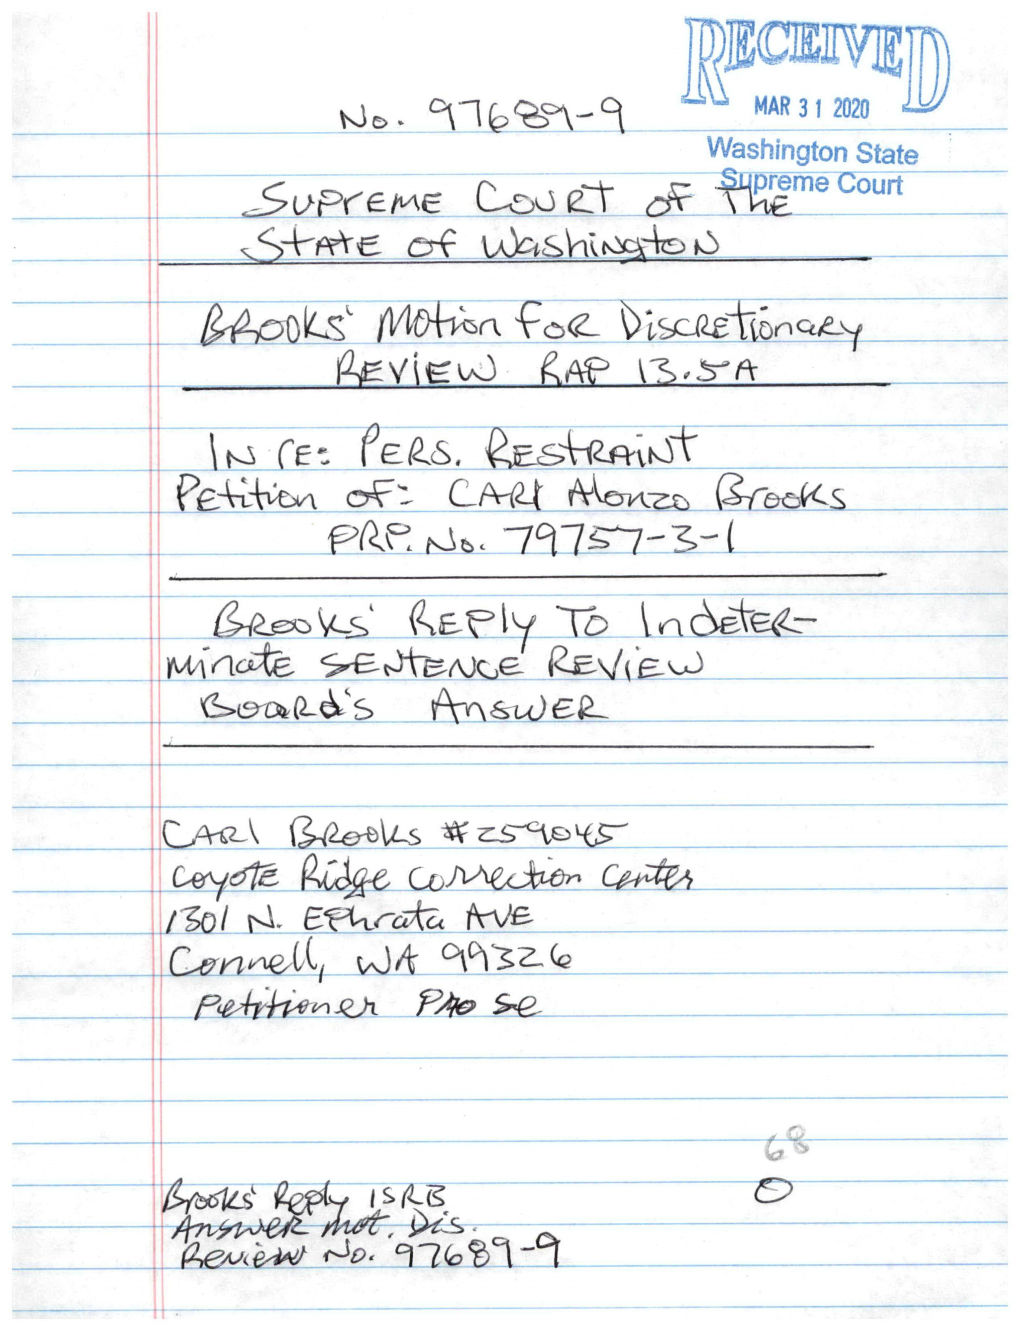 RECEIVED
MAR 31 2020
Washington State
Supreme Court
No. 97689-9
Supreme Court of The
State of Washington
Brooks' Motion for Discretionary
Review RAP 13.5A
In re: Pers. Restraint
Petition of: Carl Alonzo Brooks
PRP. No. 79757-3-1
Brooks' Reply To Indeter-
minate Sentence Review
Board's Answer
Carl Brooks #259045
Coyote Ridge Correction Center
1301 N. Ephrata Ave
Connell, WA 99326
Petitioner Pro Se
68
0
Brooks' Reply ISRB
Answer Mot. Dis.
Review No. 97689-9